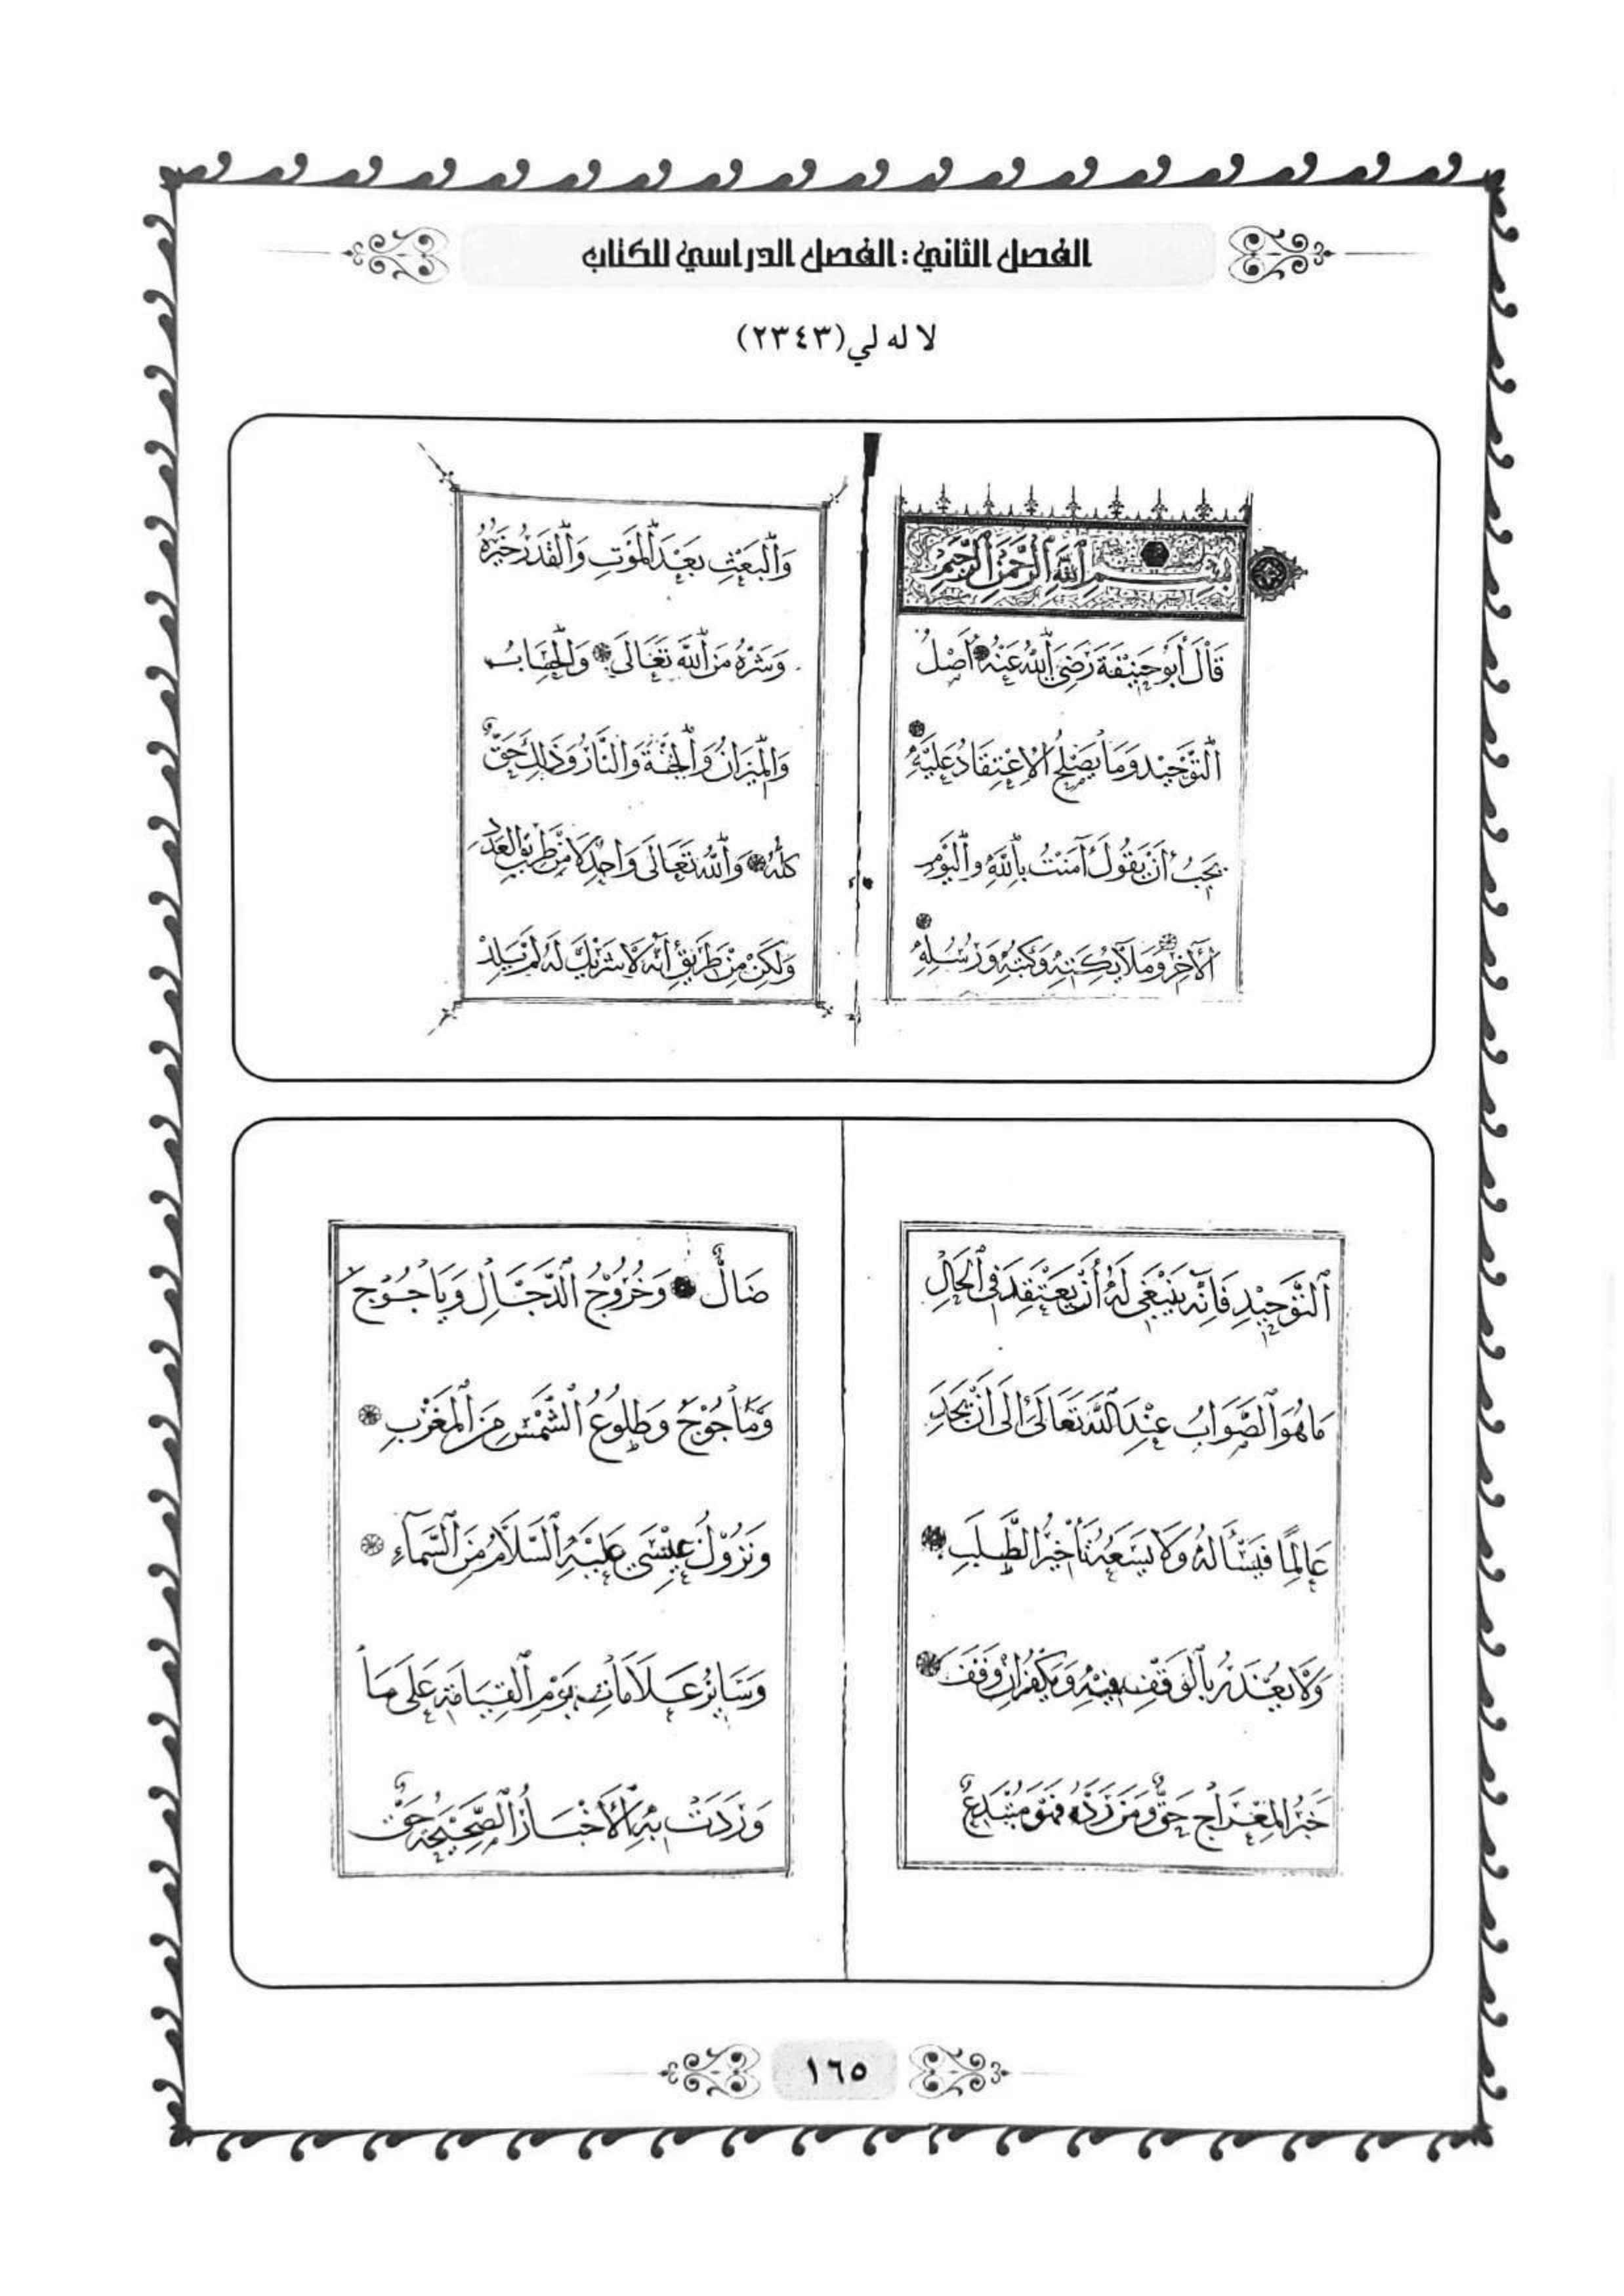 الفصل الثاني: الفصل الدراسي للكتاب
لا له لي (٢٣٤٣)
بِسْمِ اللَّهِ الرَّحْمَنِ الرَّحِيمِ
قَالَ أَبُو حَنِيفَةَ رَضِيَ اللَّهُ عَنْهُ أَصْلُ
التَّوْحِيدِ وَمَا يَصِحُّ الاِعْتِقَادُ عَلَيْهِ
يَجِبُ أَنْ يَقُولَ آمَنْتُ بِاللَّهِ وَالْيَوْمِ
الْآخِرِ وَمَلَائِكَتِهِ وَكُتُبِهِ وَرُسُلِهِ
وَالْبَعْثِ بَعْدَ الْمَوْتِ وَالْقَدَرِ خَيْرِهُ
وَشَرِّهُ مِنَ اللَّهِ تَعَالَى وَالْحِسَابُ
وَالْمِيزَانُ وَالْجَنَّةُ وَالنَّارُ وَذَلِكَ حَقٌّ
كُلُّهُ وَاللَّهُ تَعَالَى وَاحِدٌ لَا مِنْ طَرِيقِ الْعَدَدِ
وَلَكِنْ مِنْ طَرِيقِ أَنَّهُ لَا شَرِيكَ لَهُ لَمْ يَلِدْ
التَّوْحِيدِ فَإِنَّهُ يَنْبَغِي لَهُ أَنْ يَعْتَقِدَ فِي الْحَالِ
مَا هُوَ الصَّوَابُ عِنْدَ اللَّهِ تَعَالَى إِلَى أَنْ يَجِدَ
عَالِمًا فَيَسْأَلَهُ وَلَا يَسَعُهُ تَأْخِيرُ الطَّلَبِ
وَلَا يُعْذَرُ بِالْوَقْفِ فِيهِ وَيَكْفُرُ إِنْ وَقَفَ
خَبَرُ الْمِعْرَاجِ حَقٌّ وَمَنْ رَدَّهُ فَهُوَ مُبْتَدِعٌ
ضَالٌّ وَخُرُوجُ الدَّجَّالِ وَيَاْجُوْجَ
وَمَاْجُوْجَ وَطُلُوعُ الشَّمْسِ مِنَ الْمَغْرِبِ
وَنُزُوْلُ عِيْسَى عَلَيْهِ السَّلَامُ مِنَ السَّمَآءِ
وَسَائِرُ عَلَامَاتِ يَوْمِ الْقِيَامَةِ عَلَى مَا
وَرَدَتْ بِهِ الْأَخْبَارُ الصَّحِيْحَةُ حَقٌّ
١٦٥